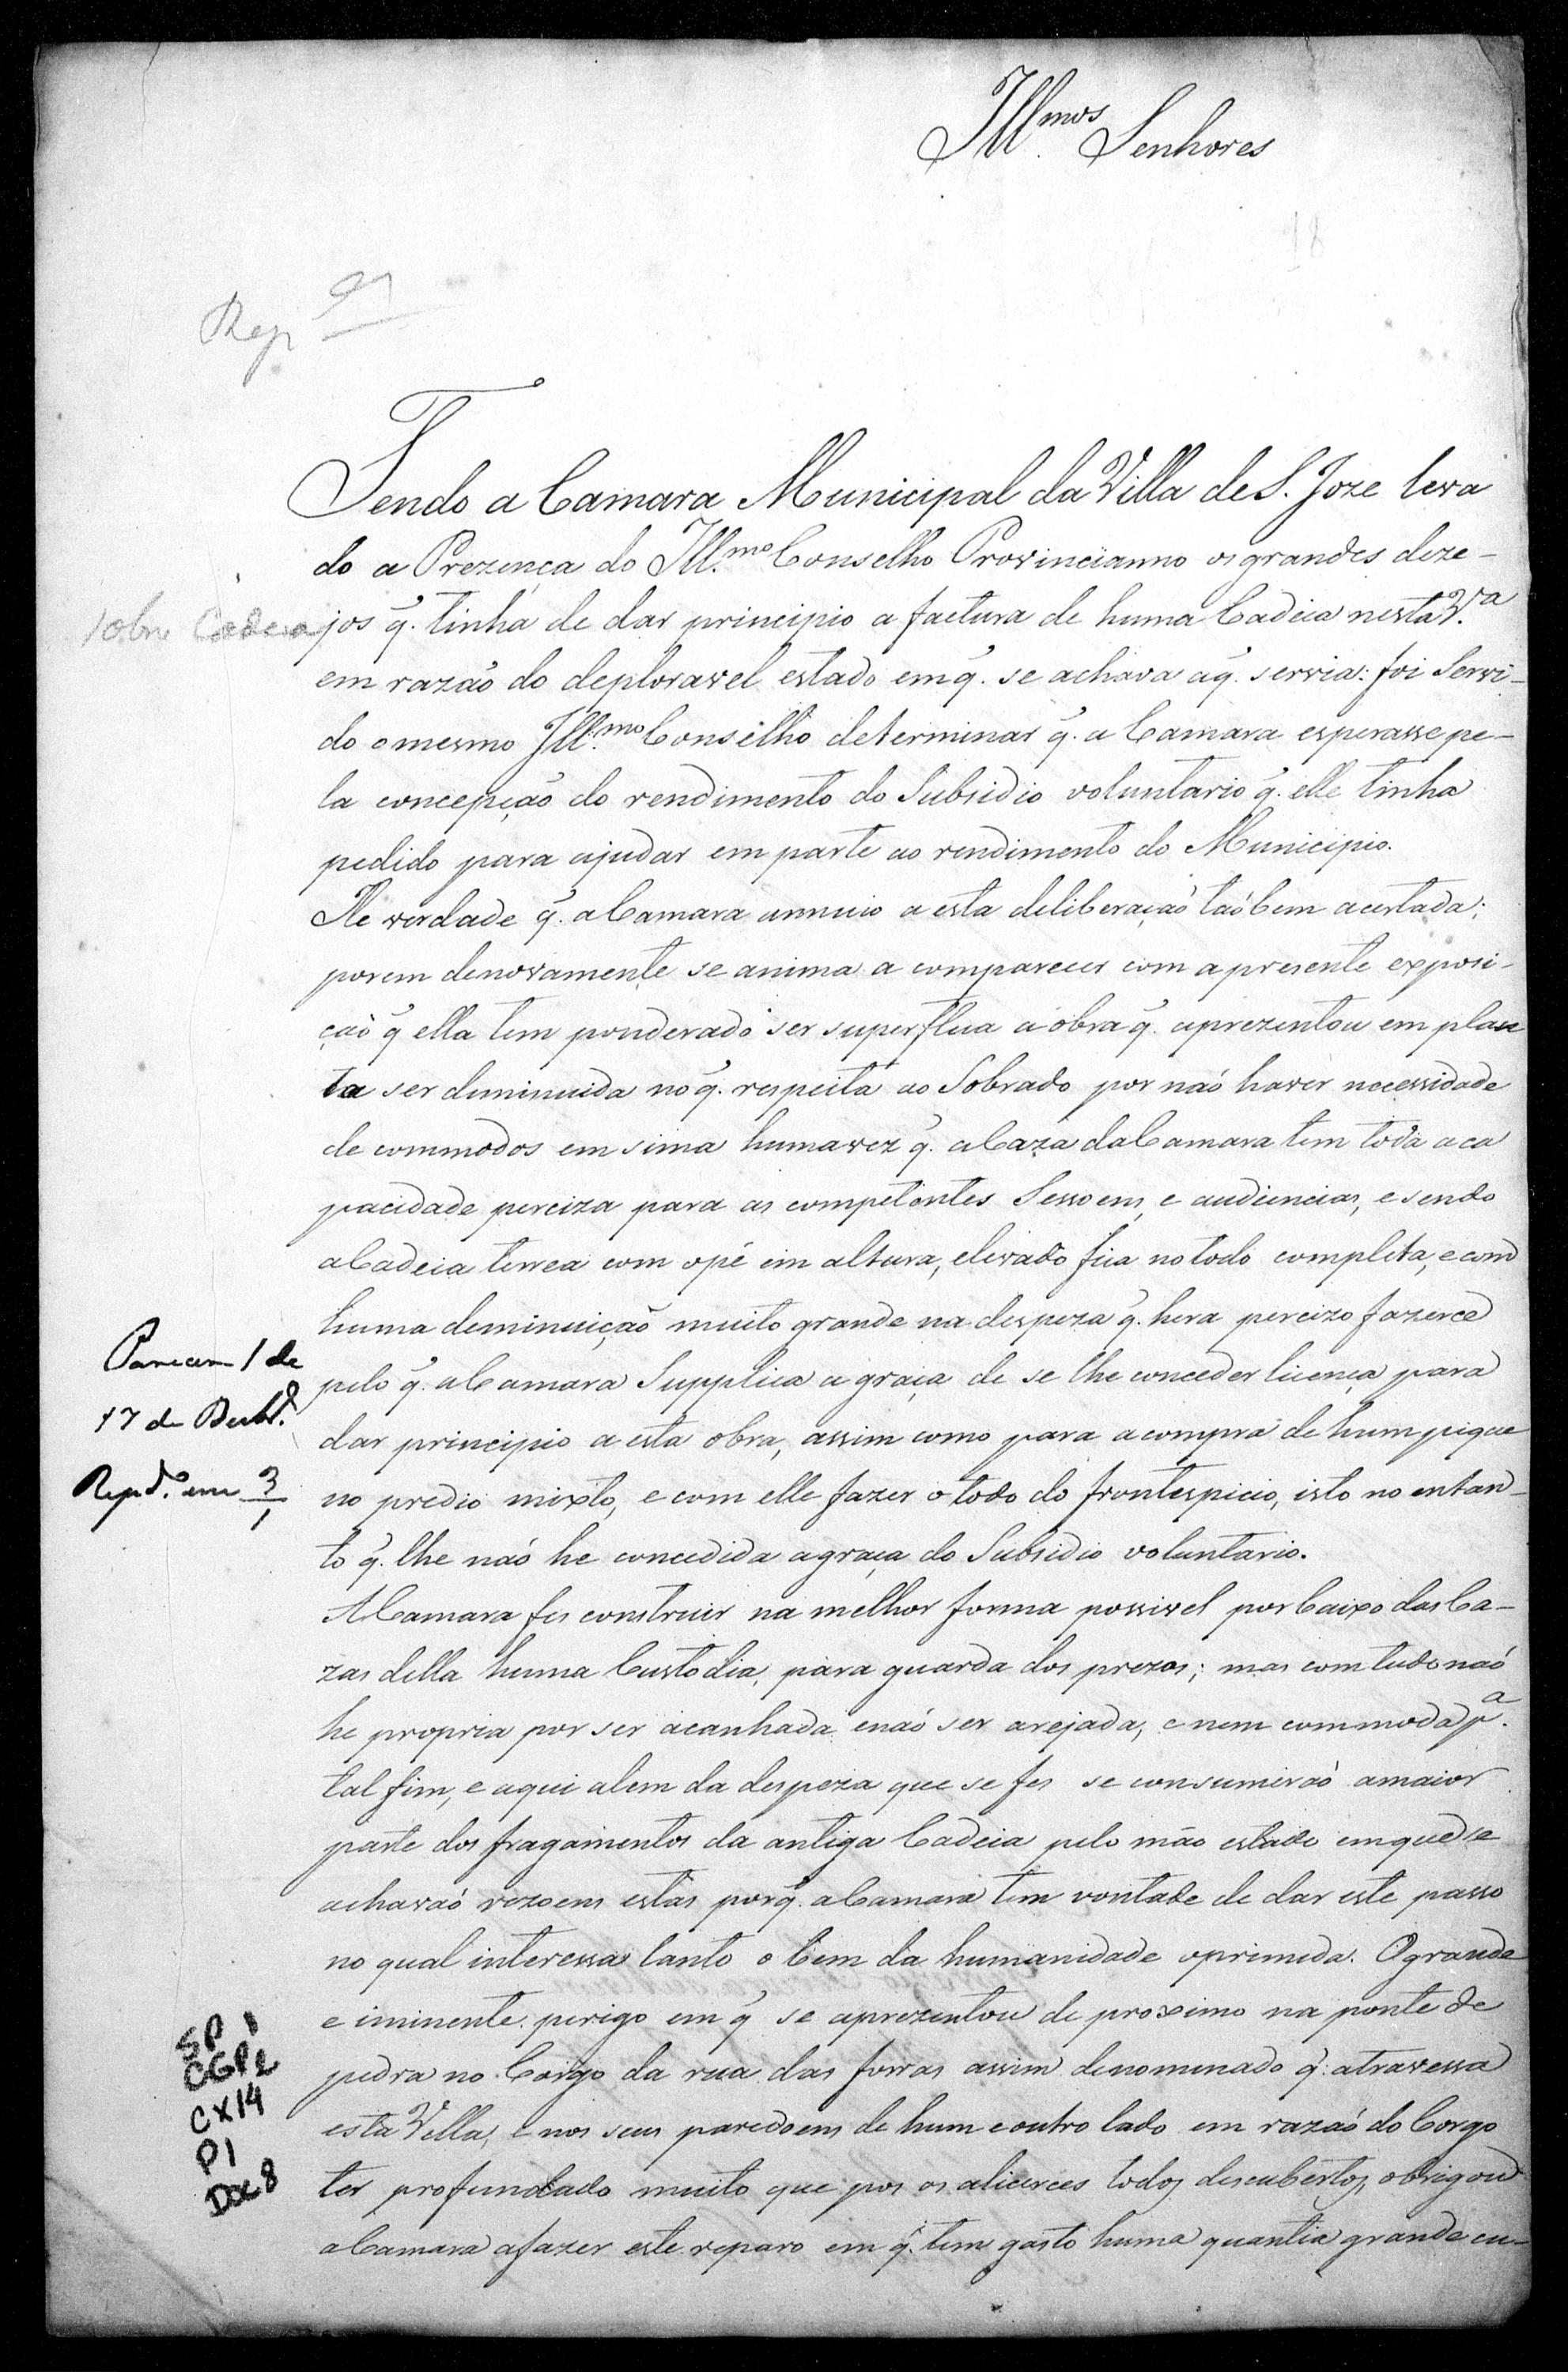 Ill.mos Senhores
18
Rep
Tendo a Camara Municipal da Villa de S. Joze leva
do a Prezença do Ill.mo Conselho Provincianno os grandes deze-
Sobre Cadeia
jos q̃. tinha de dar principio a factura de huma Cadeia nesta V.a
em razaõ do deploravel estado em q̃. se achava a q̃. servia: foi Servi-
do o mesmo Ill.mo Conselho determinar q̃. a Camara esperasse pe-
la concepçaõ do rendimento do Subsidio voluntario q̃. elle tinha
pedido para ajudar em parte ao rendimento do Municipio.
He verdade q̃. a Camara annuio a esta deliberaçaõ taõ bem acertada;
porem denovamente se anima a comparecer com a presente exposi-
çaõ q̃ ella tem ponderado ser superflua a obra q̃. aprezentou em plan
ta ser deminuida no q̃. respeita ao Sobrado por naõ haver necessidade
de commodos em sima huma vez q̃. a Caza da Camara tem toda a ca
pacidade perciza para as competentes Sessoens, e audiencias, e sendo
a Cadeia terrea com o pé em altura, elevado fica no todo completa, e com
huma deminuiçaõ muito grande na despeza q̃. hera percizo fazerce
Parecer 1 de
17 de Dezbr.o
Repd.o em 3/1
pelo q̃. a Camara Supplica a graça de se lhe conceder licença para
dar principio a esta obra, assim como para a compra de hum pique
no predio mixto, e com elle fazer o todo do frontespicio, isto no entan-
to q̃. lhe naõ he concedida a graça do Subsidio voluntario.
A Camara fes construir na melhor forma possivel por baixo das Ca-
zas della huma Custodia, para guarda dos prezos; mas com tudo naõ
he propria por ser acanhada e naõ ser arejada, e nem commoda p.a
tal fim, e aqui alem da despeza que se fes se consumiraõ a maior
parte dos fragamentos da antiga Cadeia pelo máo estado em que se
achavaõ rezoens estas porq̃. a Camara tem vontade de dar este passo
no qual interessa tanto o bem da humanidade oprimida. O grande
e iminente perigo em q̃ se aprezentou de proximo na ponte de
pedra no Corgo da rua das forras assim denominado q̃. atravessa
esta Villa, e nos seus paredoens de hum e outro lado em razaõ do Corgo
ter profundado muito que pos os alicerces todos descubertos, obrigou
a Camara a fazer este reparo em q̃. tem gasto huma quantia grande cu-
SP 1
CGP2
CX14
P1
Doc 8